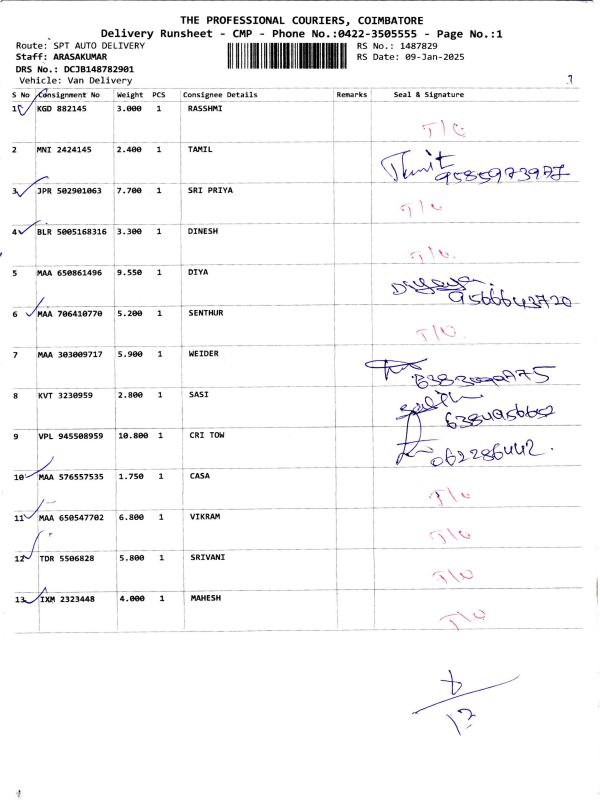 THE PROFESSIONAL COURIERS, COIMBATORE
Delivery Runsheet - CMP - Phone No.:0422-3505555 - Page No.:1
Route: SPT AUTO DELIVERY RS No.: 1487829
Staff: ARASAKUMAR RS Date: 09-Jan-2025
DRS No.: DCJB148782901
Vehicle: Van Delivery
S No Consignment No Weight PCS Consignee Details Remarks Seal & Signature
1 KGD 882145 3.000 1 RASSHMI
2 MNI 2424145 2.400 1 TAMIL
3 JPR 502901063 7.700 1 SRI PRIYA
4 BLR 5005168316 3.300 1 DINESH
5 MAA 650861496 9.550 1 DIYA
9566643720
6 MAA 706410770 5.200 1 SENTHUR
7 MAA 303009717 5.900 1 WEIDER
8 KVT 3230959 2.800 1 SASI
9 VPL 945508959 10.800 1 CRI TOW
10 MAA 576557535 1.750 1 CASA
11 MAA 650547702 6.800 1 VIKRAM
12 TDR 5506828 5.800 1 SRIVANI
13 IXM 2323448 4.000 1 MAHESH